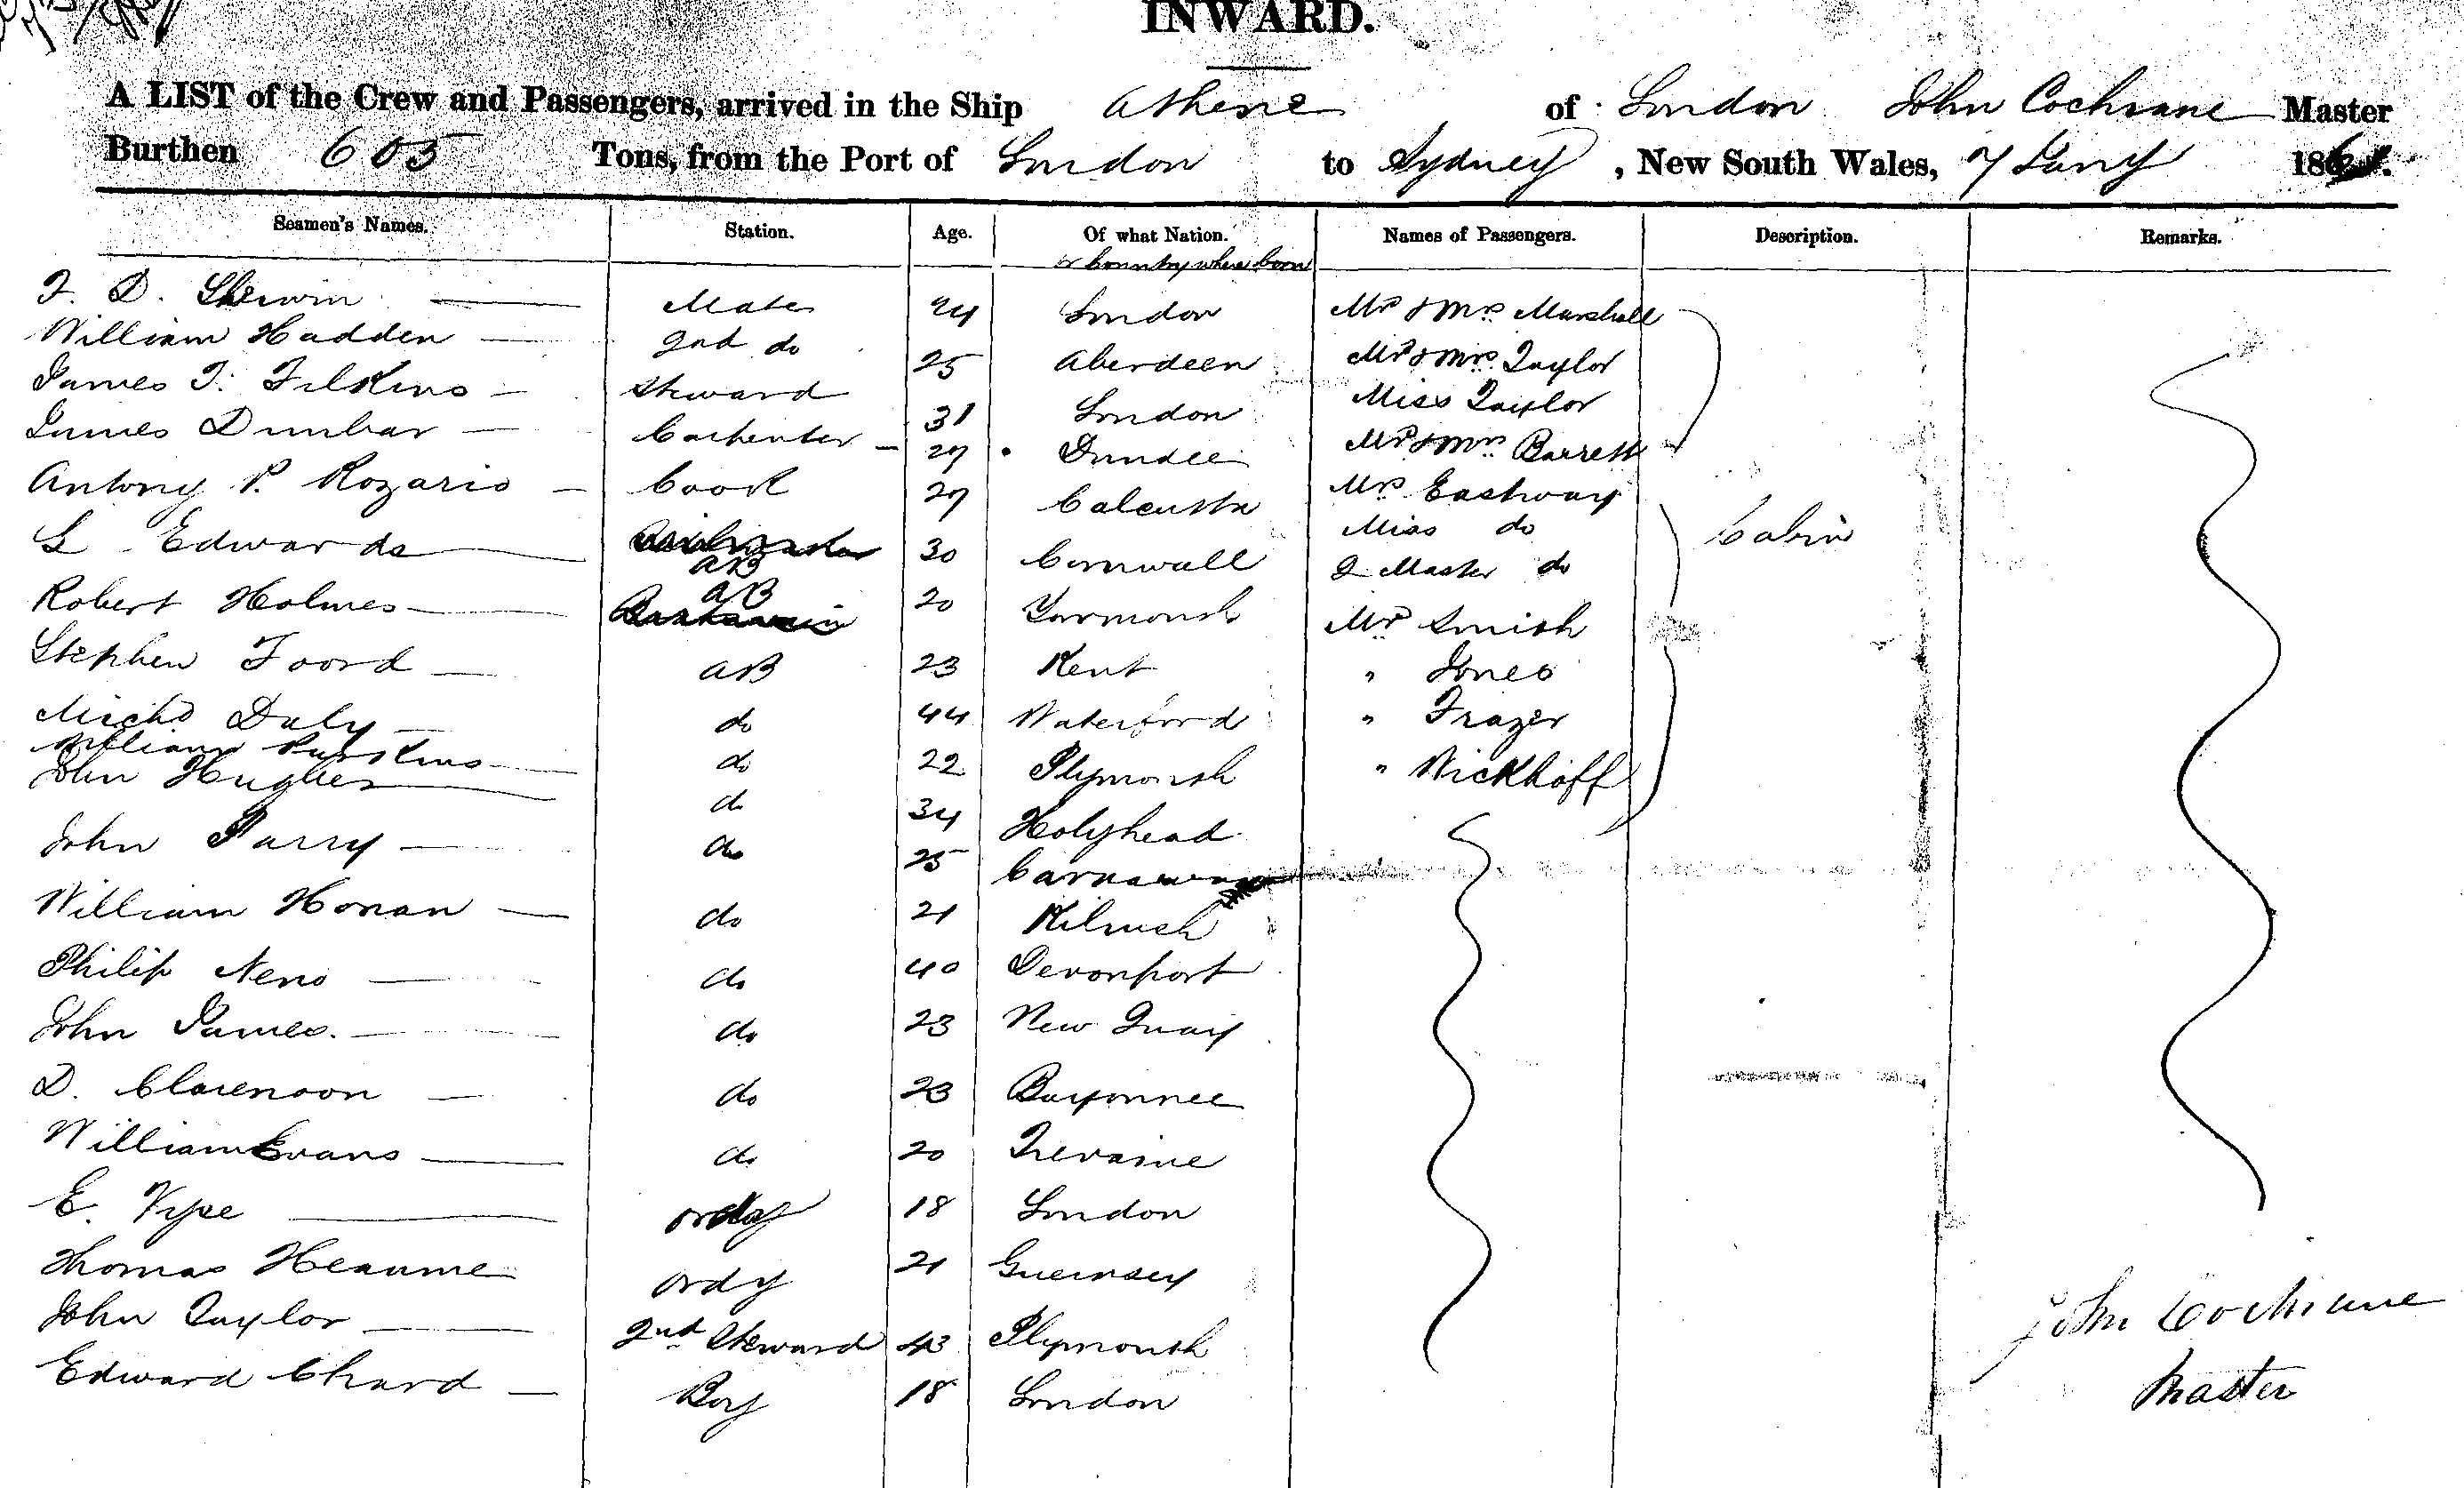 INWARD.
A LIST of the Crew and Passengers, arrived in the Ship Athene of London John Cochrane Master
Burthen 605 Tons, from the Port of London to Sydney, New South Wales, 7 Jany 186
Seamen's Names. Station. Age. Of what Nation. Names of Passengers. Description. Remarks.
or Country where born
J. D. Sherwin Mate 24 London Mr & Mrs Marshall
William Hadden 2nd do 25 Aberdeen Mr & Mrs Taylor
James T. Filkins Steward 31 London Miss Taylor
James Dunbar Carpenter 27 Dundee Mr & Mrs Barrett
Antony P. Rozario Cook 27 Calcutta Mrs Eastway
Miss do
L Edwards AB 30 Cornwall 2 Master do Cabin
Robert Holmes AB 20 Yarmouth Mr Smith
Stephen Foord AB 23 Kent " Jones
Michl Daly do 44 Waterford " Frazer
William do 22 Plymouth " Wickhoff
John Hughes do 34 Holyhead
John Parry do 25
William Honan do 21 Kilrush
Philip Neno do 40 Devonport
John James. do 23 New Quay
D. Clarenson do 23 Bayonnee
William Evans do 20
E. Vype ordy 18 London
Thomas Heaume ordy 21 Guernsey
John Taylor 2nd Steward 43 Plymouth
Edward Chard Boy 18 London
John Cochrane
Master